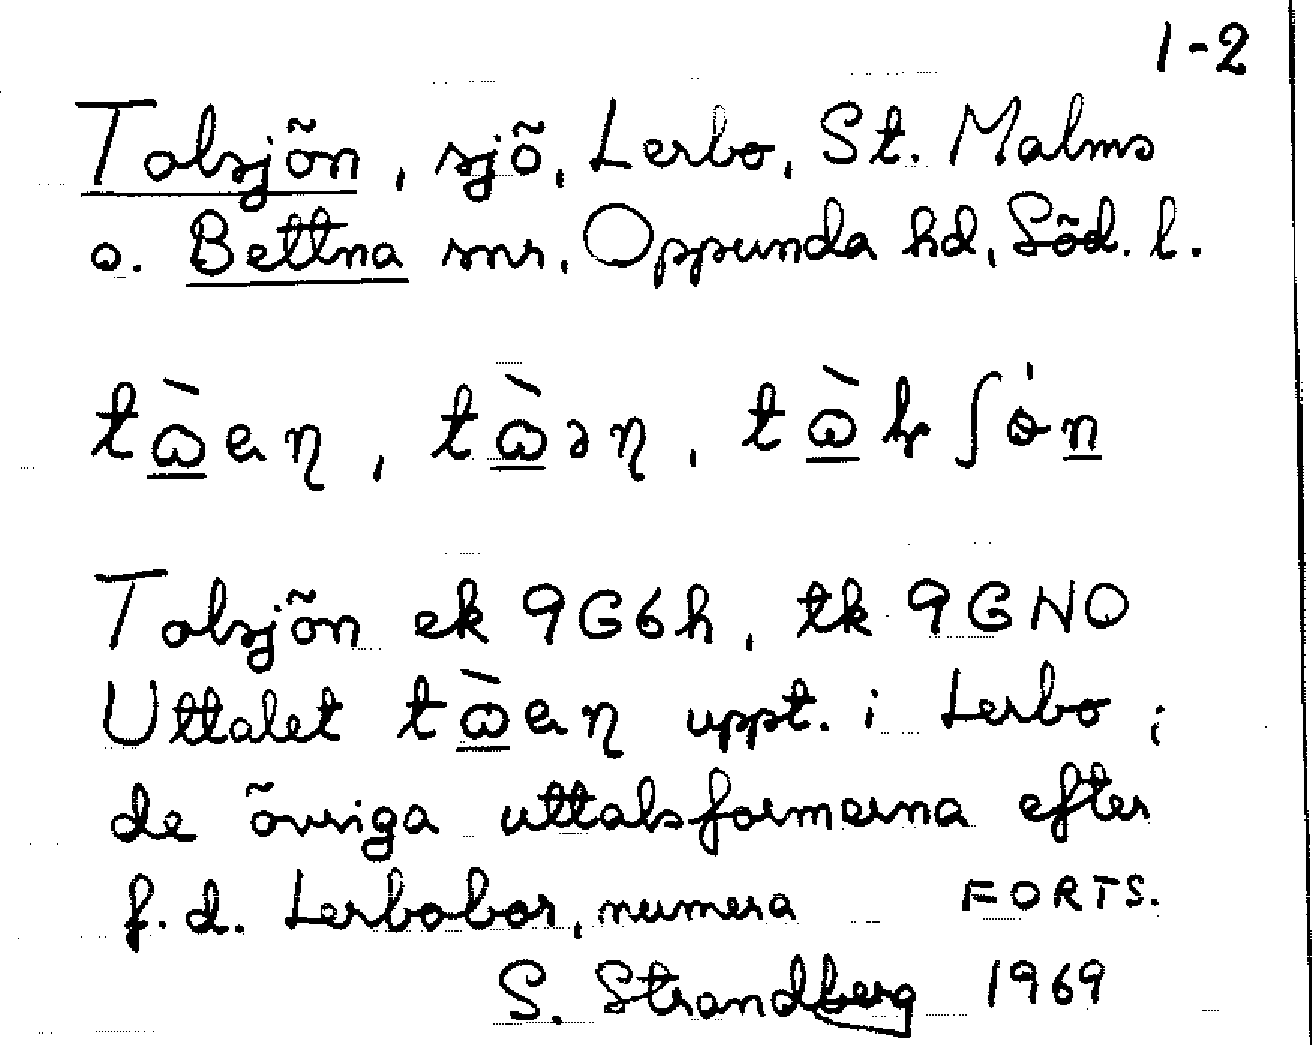 1-2
Tolsjön, sjö, Lerbo, St. Malms
o. Bettna snr, Oppunda hd, Söd. l.
Tolsjön ek 9G6h, tk 9GNO
Uttalet uppt. i Lerbo ;
de övriga uttalsformerna efter
f.d. Lerbobor, numera FORTS.
S. Strandberg 1969